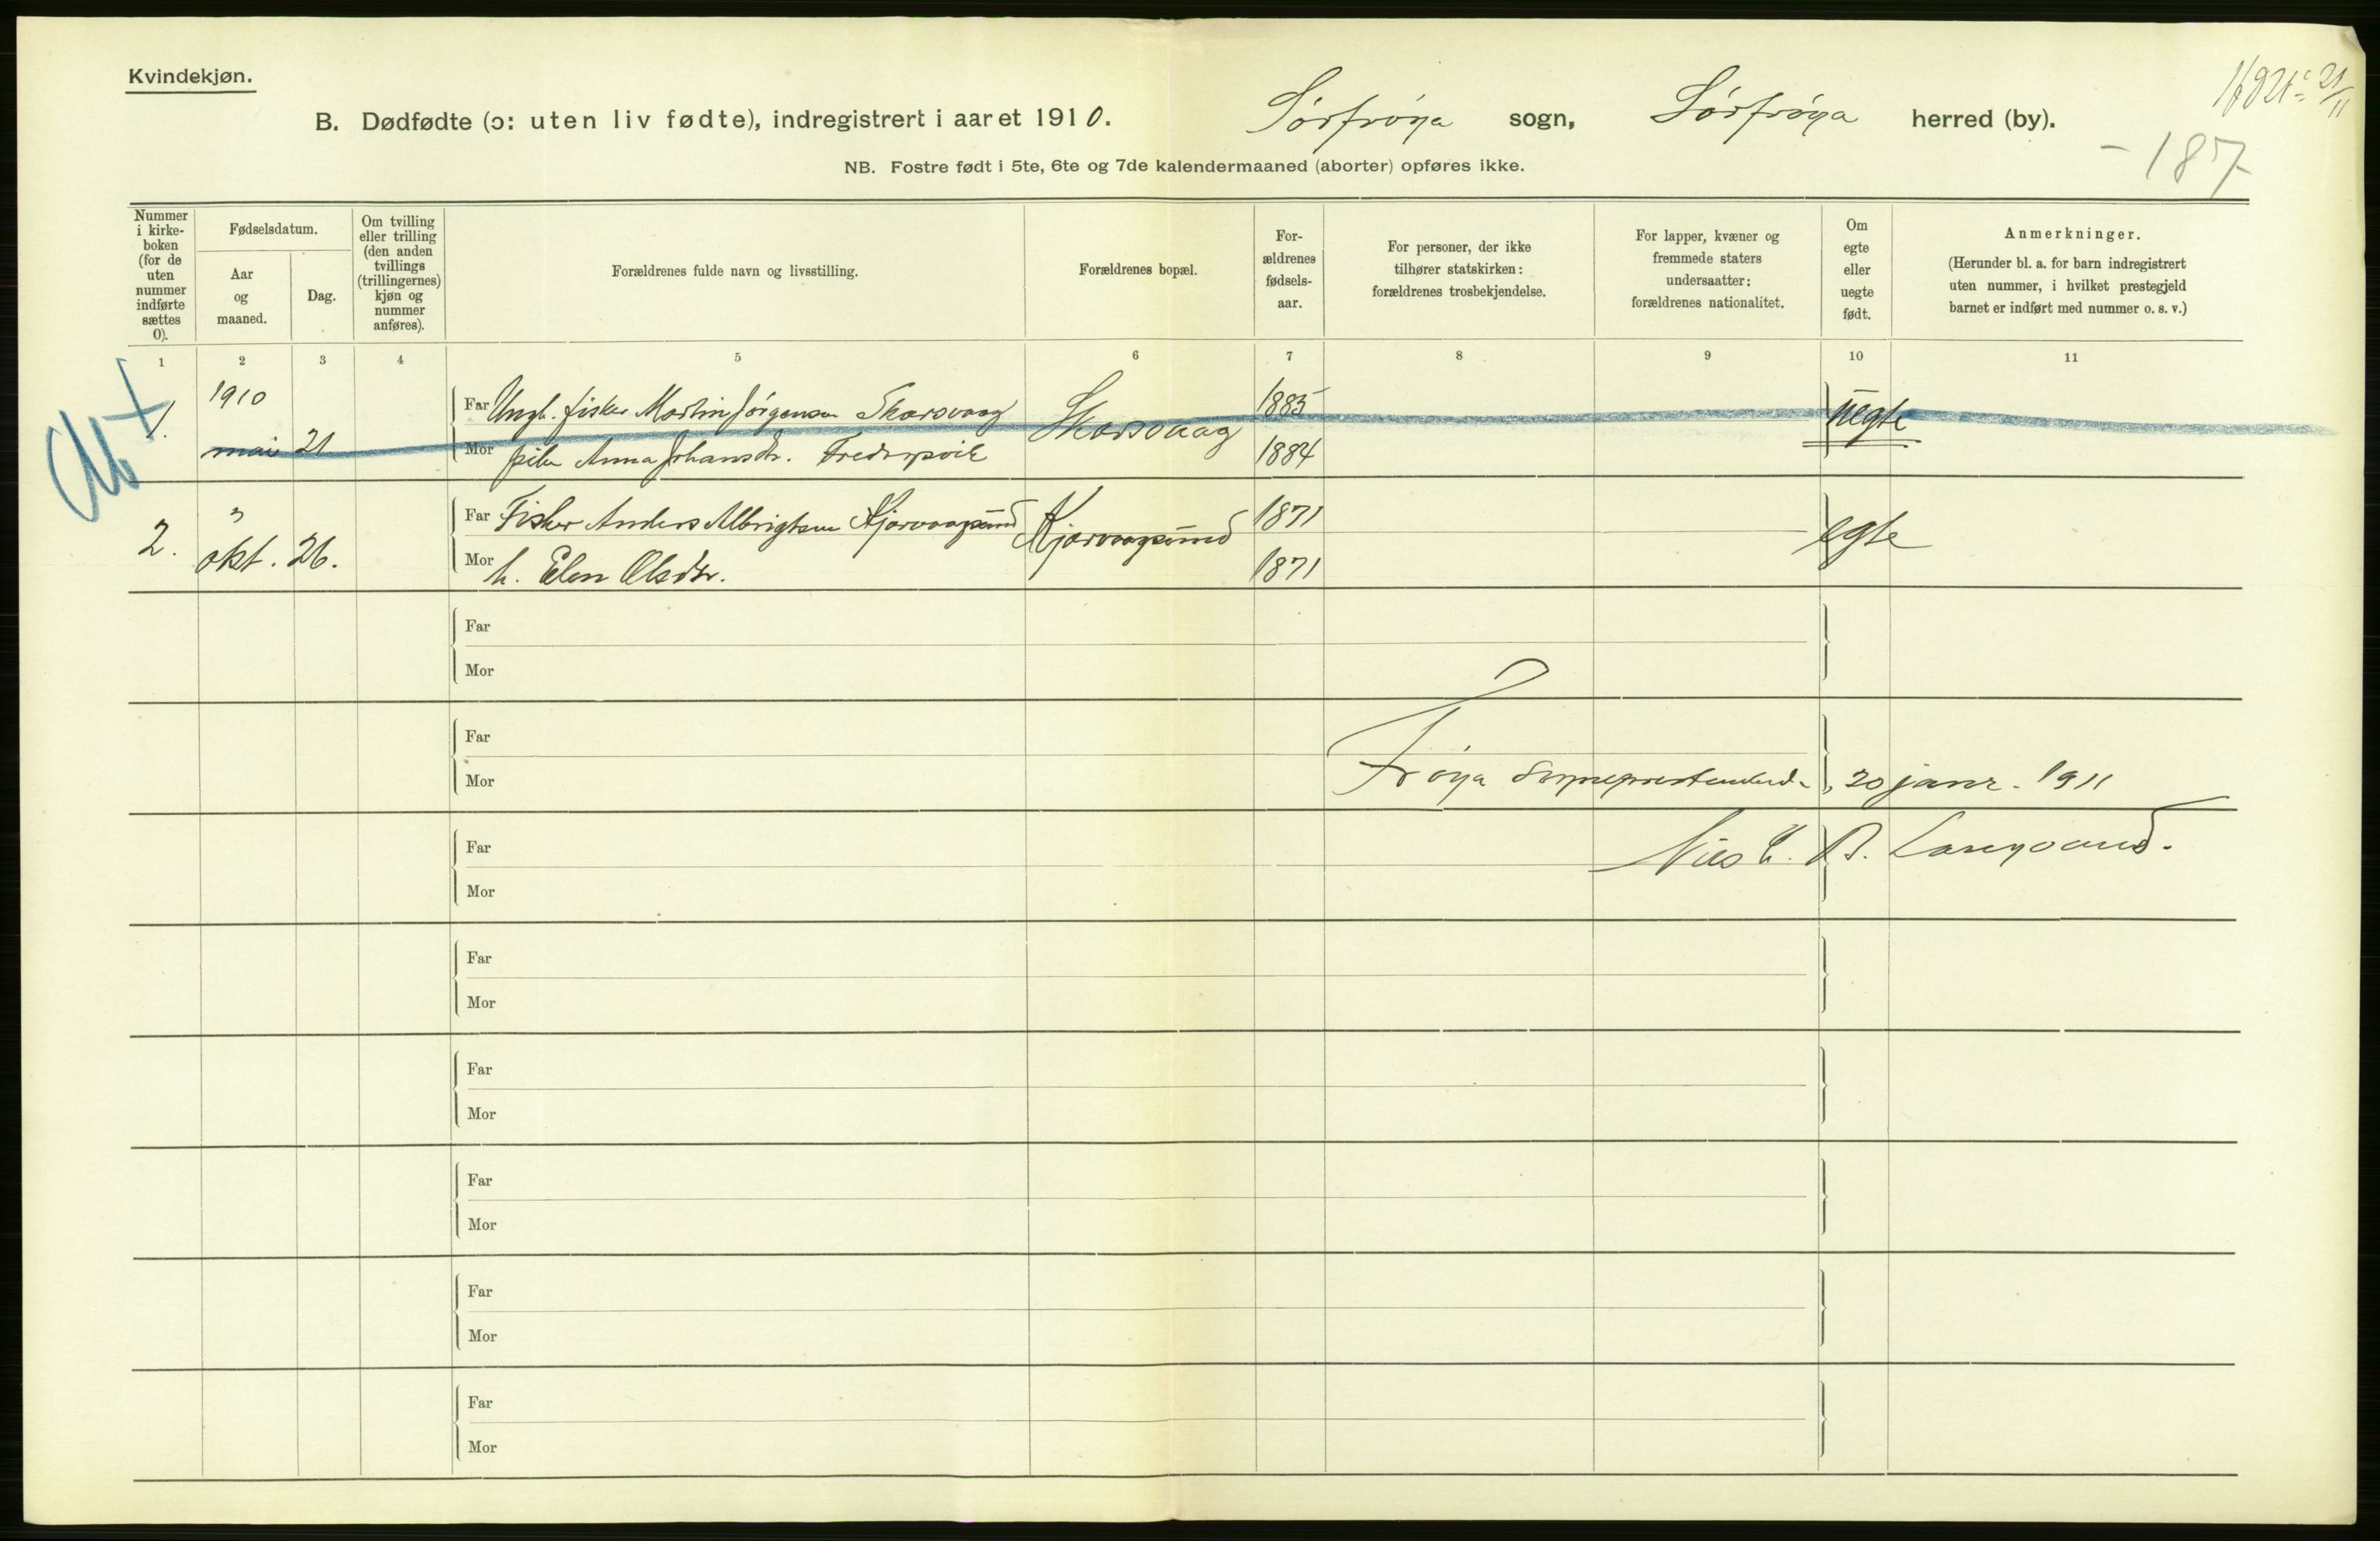 Kvindekjøn.
B. Dødfødte (ɔ: uten liv fødte), indregistrert i aaret 1910. Sørfrøya sogn, Sørfrøya herred (by).
- 187
NB. Fostre født i 5te, 6te og 7de kalendermaaned (aborter) opføres ikke.
Nummer
i kirke-
boken
(for de
uten
nummer
indførte
sættes
0).
Fødselsdatum.
Aar
og
maaned.
Dag.
Om tvilling
eller trilling
(den anden
tvillings
(trillingernes)
kjøn og
nummer
anføres).
Forældrenes fulde navn og livsstilling.
Forældrenes bopæl.
For-
ældrenes
fødsels-
aar.
For personer, der ikke
tilhører statskirken:
forældrenes trosbekjendelse.
For lapper, kvæner og
fremmede staters
undersaatter:
forældrenes nationalitet.
Om
egte
eller
uegte
født.
Anmerkninger.
(Herunder bl. a. for barn indregistrert
uten nummer, i hvilket prestegjeld
barnet er indført med nummer o. s. v.)
1 2 3 4 5 6 7 8 9 10 11
1. 1910 mai 21
Far Ungk. fisker Martin Jørgensen Skarsvaag Skarsvaag 1885 uegte
Mor pike Anna Johansdtr. Fredrikpvik 1884
2. " okt. 26.
Far Fisker Anders Albrigtsen Kjervaagsund Kjervaagsund 1871 egte
Mor h. Elen Olsdtr. 1871
Far
Mor
Far
Mor
Frøya sogneprestembed, 20 janr. 1911
Far
Nils
Mor
Far
Mor
Far
Mor
Far
Mor
Far
Mor
Far
Mor